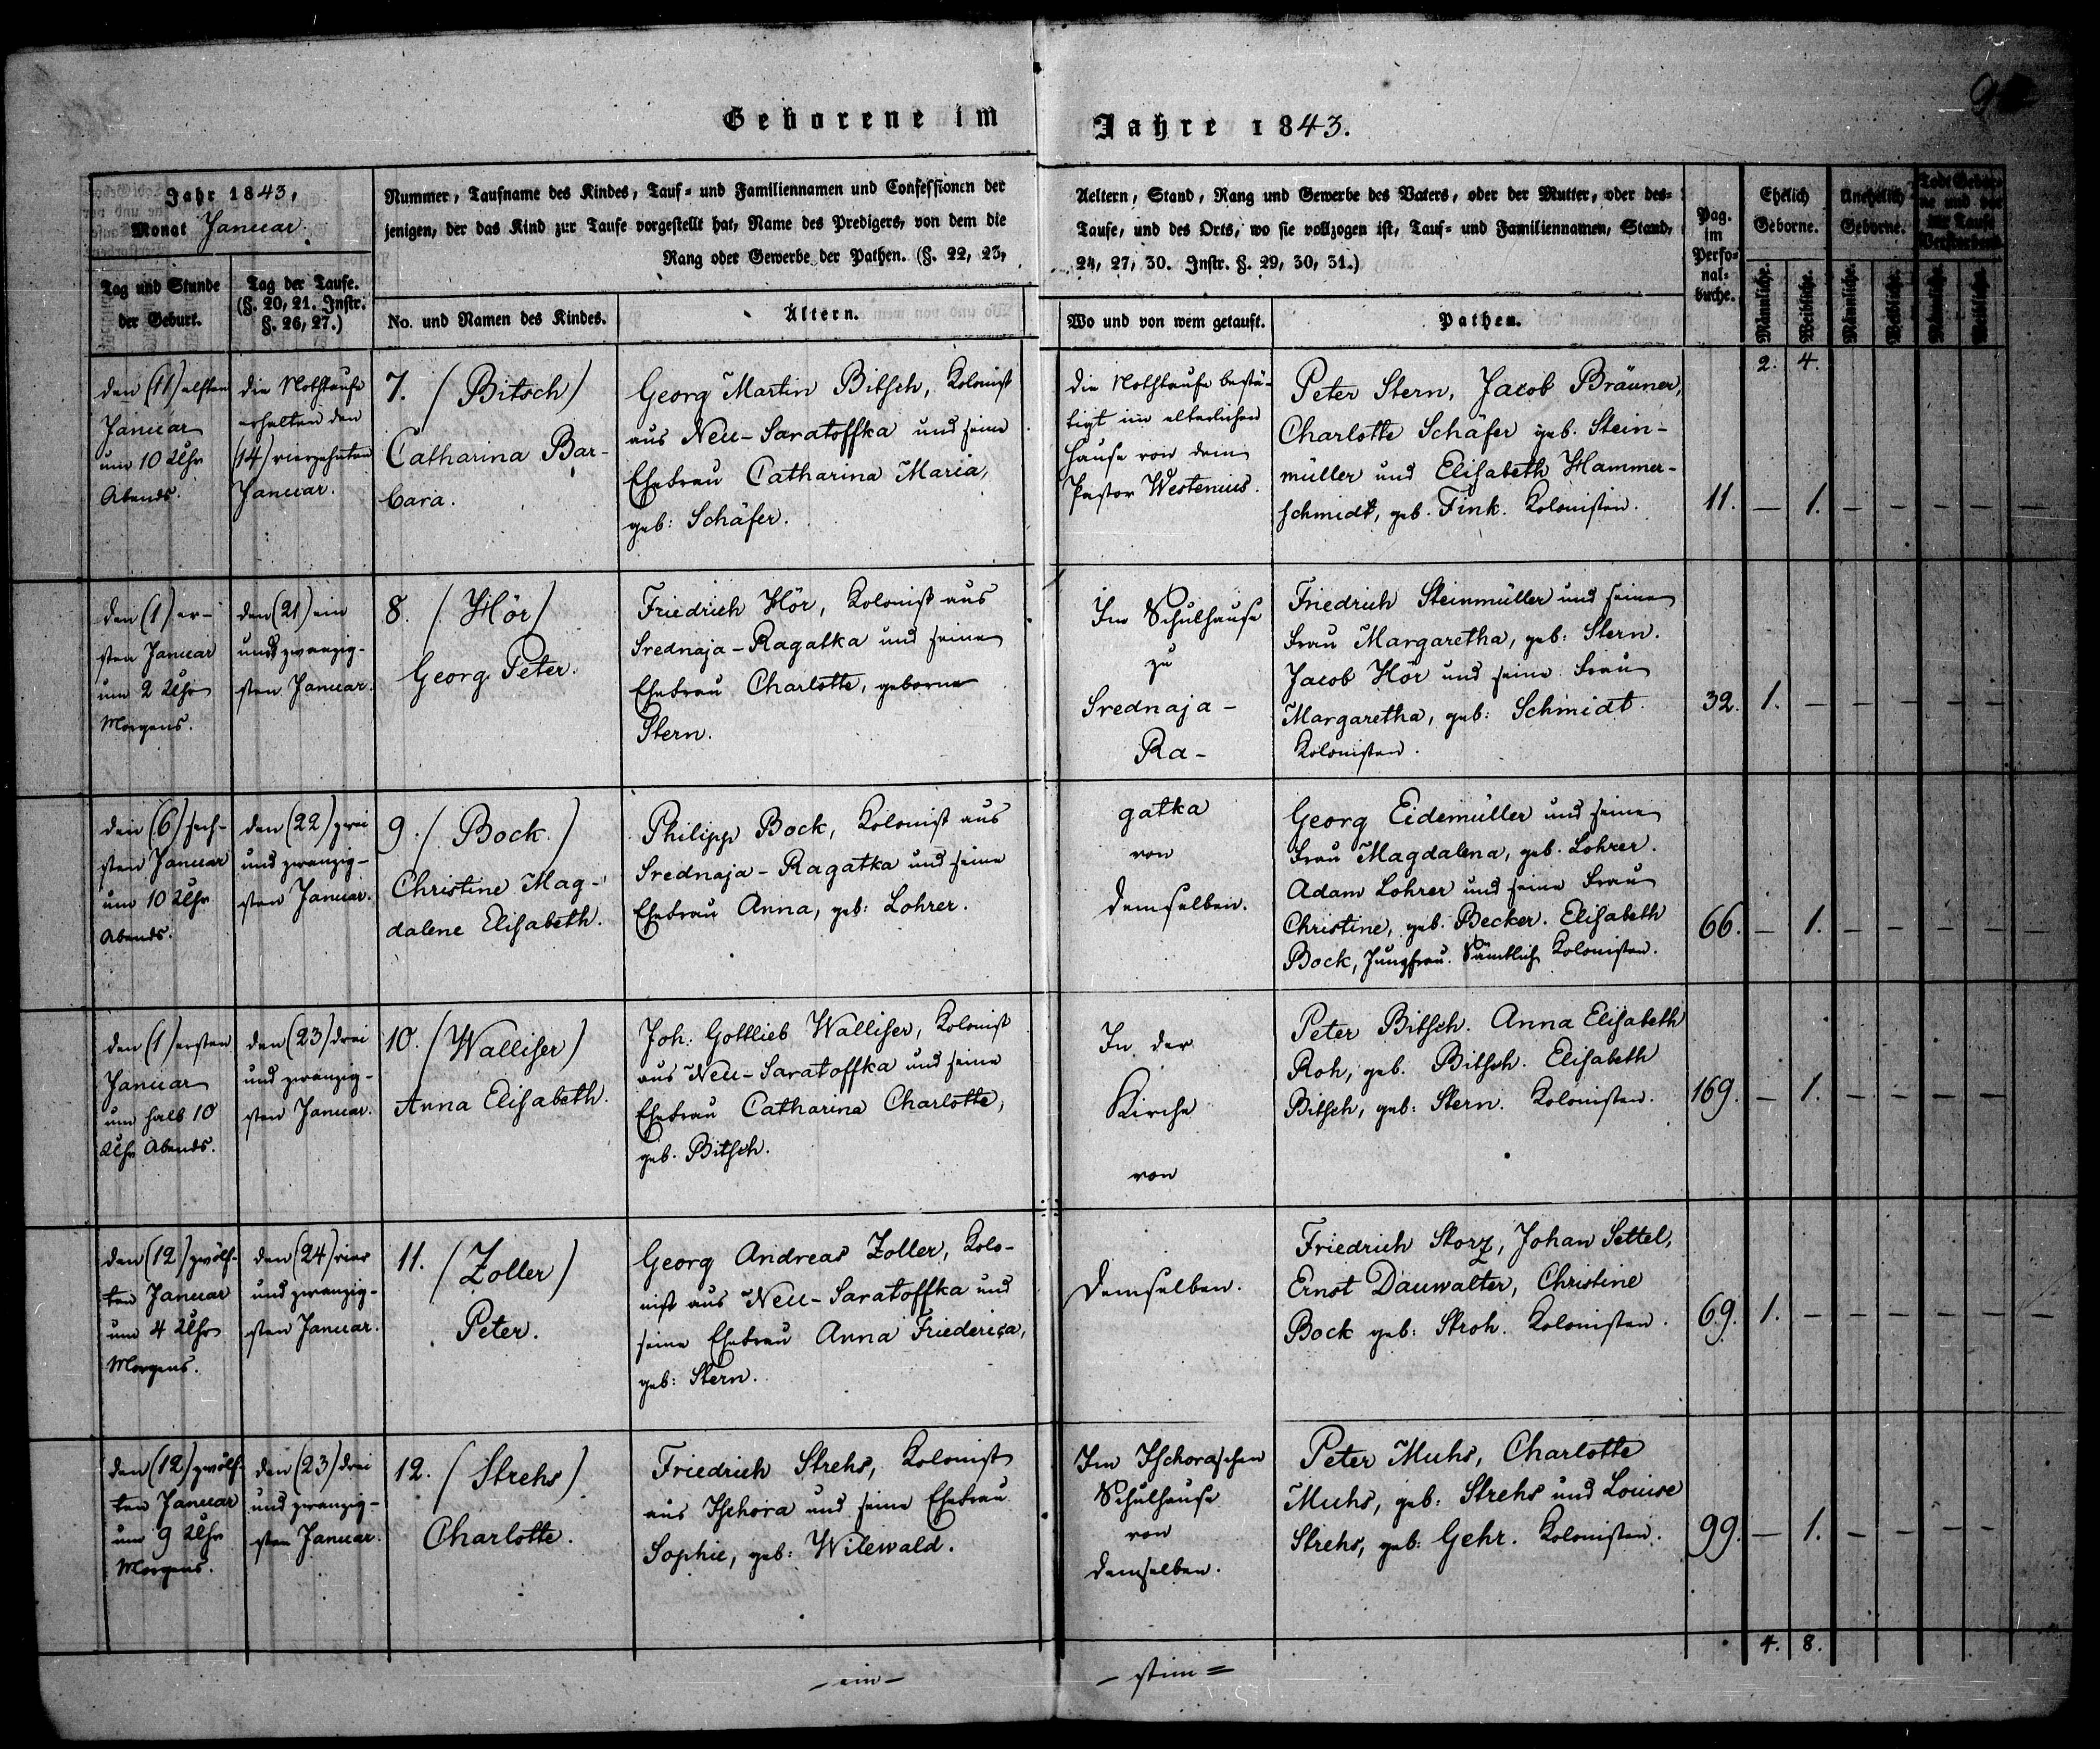 Geborene im Jahre 1843.
Jahr 1843,
Monat Januar.
Nummer, Taufname des Kindes, Tauf= und Familiennamen und Confessionen der
jenigen, der das Kind zur Taufe vorgestellt hat, Name des Predigers, von dem die
Rang oder Gewerbe der Pathen. (§. 22, 23,
Aeltern, Stand, Rang und Gewerbe des Vaters, oder der Mutter, oder des=
Taufe, und des Orts, wo sie vollzogen ist, Tauf= und Familiennamen, Stand,
24, 27, 30. Instr. §. 29, 30, 31.)
Pag.
im
Perso=
nal=
buche.
Ehelich
Geborne.
Unehelich
Geborne.
Todt Gebor=
ne und vor
der Taufe
Verstorbene.
Tag und Stunde
der Geburt.
Tag der Taufe.
(§. 20, 21. Instr.
§. 26, 27.)
No. und Namen des Kindes.
Ältern.
Wo und von wem getauft.
Pathen.
Männliche.
Weibliche.
Männliche.
Weibliche.
Männliche.
Weibliche.
2. 4.
den (11) elften
Januar
um 10 Uhr
Abends.
die Nothtaufe
erhalten den
(14) vierzehnten
Januar.
7. (Bitsch)
Catharina Bar-
bara.
Georg Martin Bitsch, Kolonist
aus Neu-Saratoffka und seine
Ehefrau Catharina Maria,
geb: Schäfer.
die Nothtaufe bestä-
tigt im elterlichen
Hause von dem
Pastor Westenius.
Peter Stern, Jacob Bräuner,
Charlotte Schäfer geb. Stein-
müller und Elisabeth Hammer-
schmidt, geb. Fink. Kolonisten.
11. — 1. — — — —
den (1) er-
sten Januar
um 2 Uhr
Morgens.
den (21) ein
und zwanzig-
sten Januar.
8. (Hör)
Georg Peter.
Friedrich Hör, Kolonist aus
Srednaja-Ragatka und seine
Ehefrau Charlotte, geborne
Stern.
Im Schulhause
zu
Srednaja-
Ra-
Friedrich Steinmüller und seine
Frau Margaretha, geb: Stern.
Jacob Hör und seine Frau
Margaretha, geb: Schmidt.
Kolonisten.
32. 1. — — — — —
den (6) sech-
sten Januar
um 10 Uhr
Abends.
den (22) zwei
und zwanzig-
sten Januar.
9. (Bock.)
Christine Mag-
dalene Elisabeth.
Philipp Bock, Kolonist aus
Srednaja-Ragatka und seine
Ehefrau Anna, geb: Lohrer.
gatka
von
demselben.
Georg Eidemüller und seine
Frau Magdalena, geb. Lohrer.
Adam Lohrer und seine Frau
Christine, geb. Becker. Elisabeth
Bock, Jungfrau. Sämtlich Kolonisten.
66. — 1. — — — —
den (1) ersten
Januar
um halb 10
Uhr Abends.
den (23) drei
und zwanzig-
sten Januar.
10. (Walliser)
Anna Elisabeth.
Joh: Gottlieb Walliser, Kolonist
aus Neu-Saratoffka und seine
Ehefrau Catharina Charlotte,
geb. Bitsch.
In der
Kirche
von
Peter Bitsch. Anna Elisabeth
Roh, geb. Bitsch. Elisabeth
Bitsch, geb: Stern. Kolonisten.
169. — 1. — — — —
den (12) zwölf-
ten Januar
um 4 Uhr
Morgens.
den (24) vier
und zwanzig-
sten Januar.
11. (Zoller)
Peter.
Georg Andreas Zoller, Kolo-
nist aus Neu-Saratoffka und
seine Ehefrau Anna Friederica,
geb: Stern.
demselben.
Friedrich Storz, Johan Settel,
Ernst Dauwalter, Christine
Bock geb: Stroh. Kolonisten.
69. 1. — — — — —
den (12) zwölf-
ten Januar
um 9 Uhr
Morgens.
den (23) drei
und zwanzig-
sten Januar.
12. (Strehs)
Charlotte.
Friedrich Strehs, Kolonist
aus Ischora und seine Ehefrau
Sophie, geb: Wilewald.
Im Ischoraschen
Schulhause
von
demselben.
Peter Muhs, Charlotte
Muhs, geb: Strehs und Louise
Strehs, geb: Gehr. Kolonisten.
99. — 1. — — — —
4. 8.
— ein —
— stim =